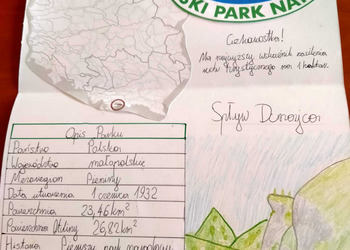 SKI PARK NA
Ciekawostka!
Ma najwyższy wskaźnik nasilenia
ruchu turystycznego na 1 hektar.
Spływ Dunajcem
Opis Parku
Państwo Polska
Województwo małopolskie
Mezoregion Pieniny
Data utworzenia 1 czerwca 1932
Powierzchnia 23,46 km²
Powierzchnia Otuliny 26,82 km²
Historia Pierwszy park narodowy